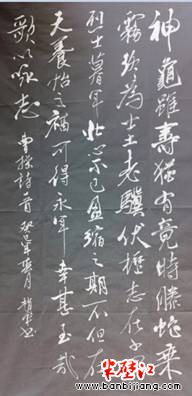 神龜雖壽猶有竟時騰蛇乘
霧終為土老驥伏櫪志在千
烈士暮年壯心不已盈縮之期不但在
天養怡之福可得永年幸甚至哉
歌以詠志 曹操詩一首
半壁江
www.banbijiang.com